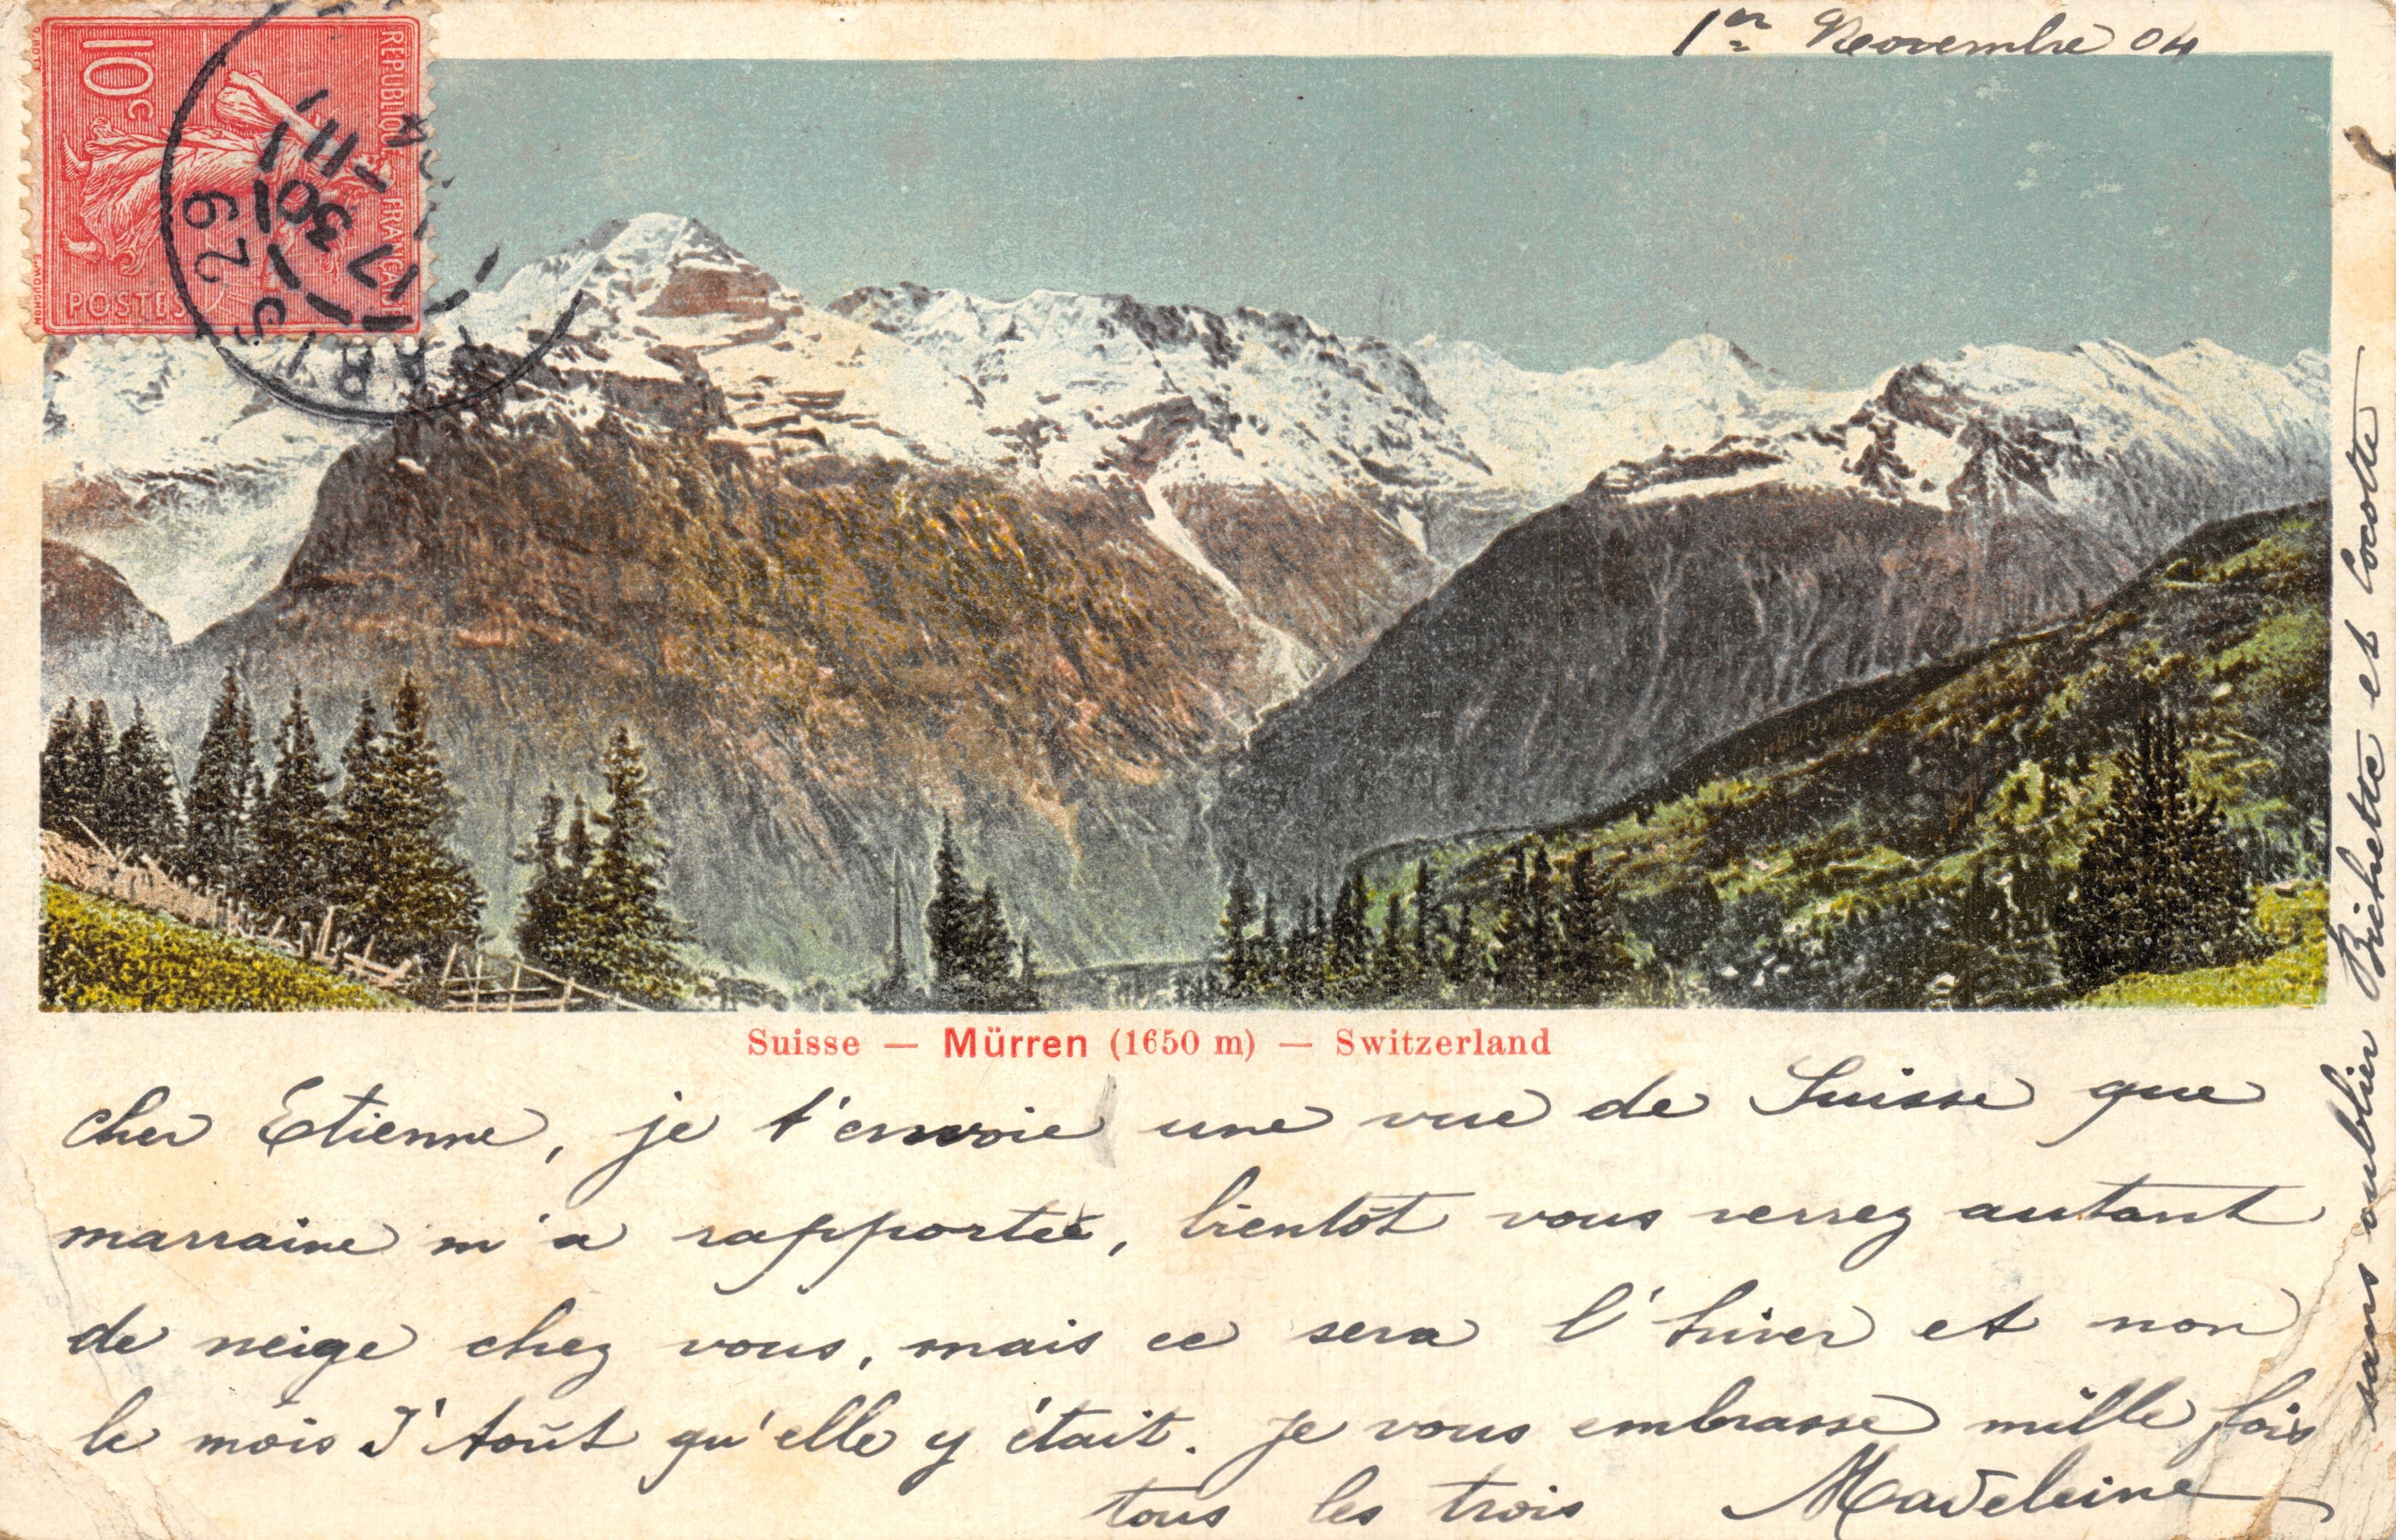 1er Novembre 04
10c
REPUBLIQUE FRANCAISE
POSTES
O.ROTY
E.MOUCHON
PARIS
17
30
29
Suisse — Mürren (1650 m) — Switzerland
cher Etienne, je t'envoie une vue de Suisse que
marraine m'a rapportée, bientôt vous verrez autant
de neige chez vous, mais ce sera l'hiver et non
le mois d'Août qu'elle y était. je vous embrasse mille fois
tous les trois Madeleine
sans oublier Bichette et Cocotte